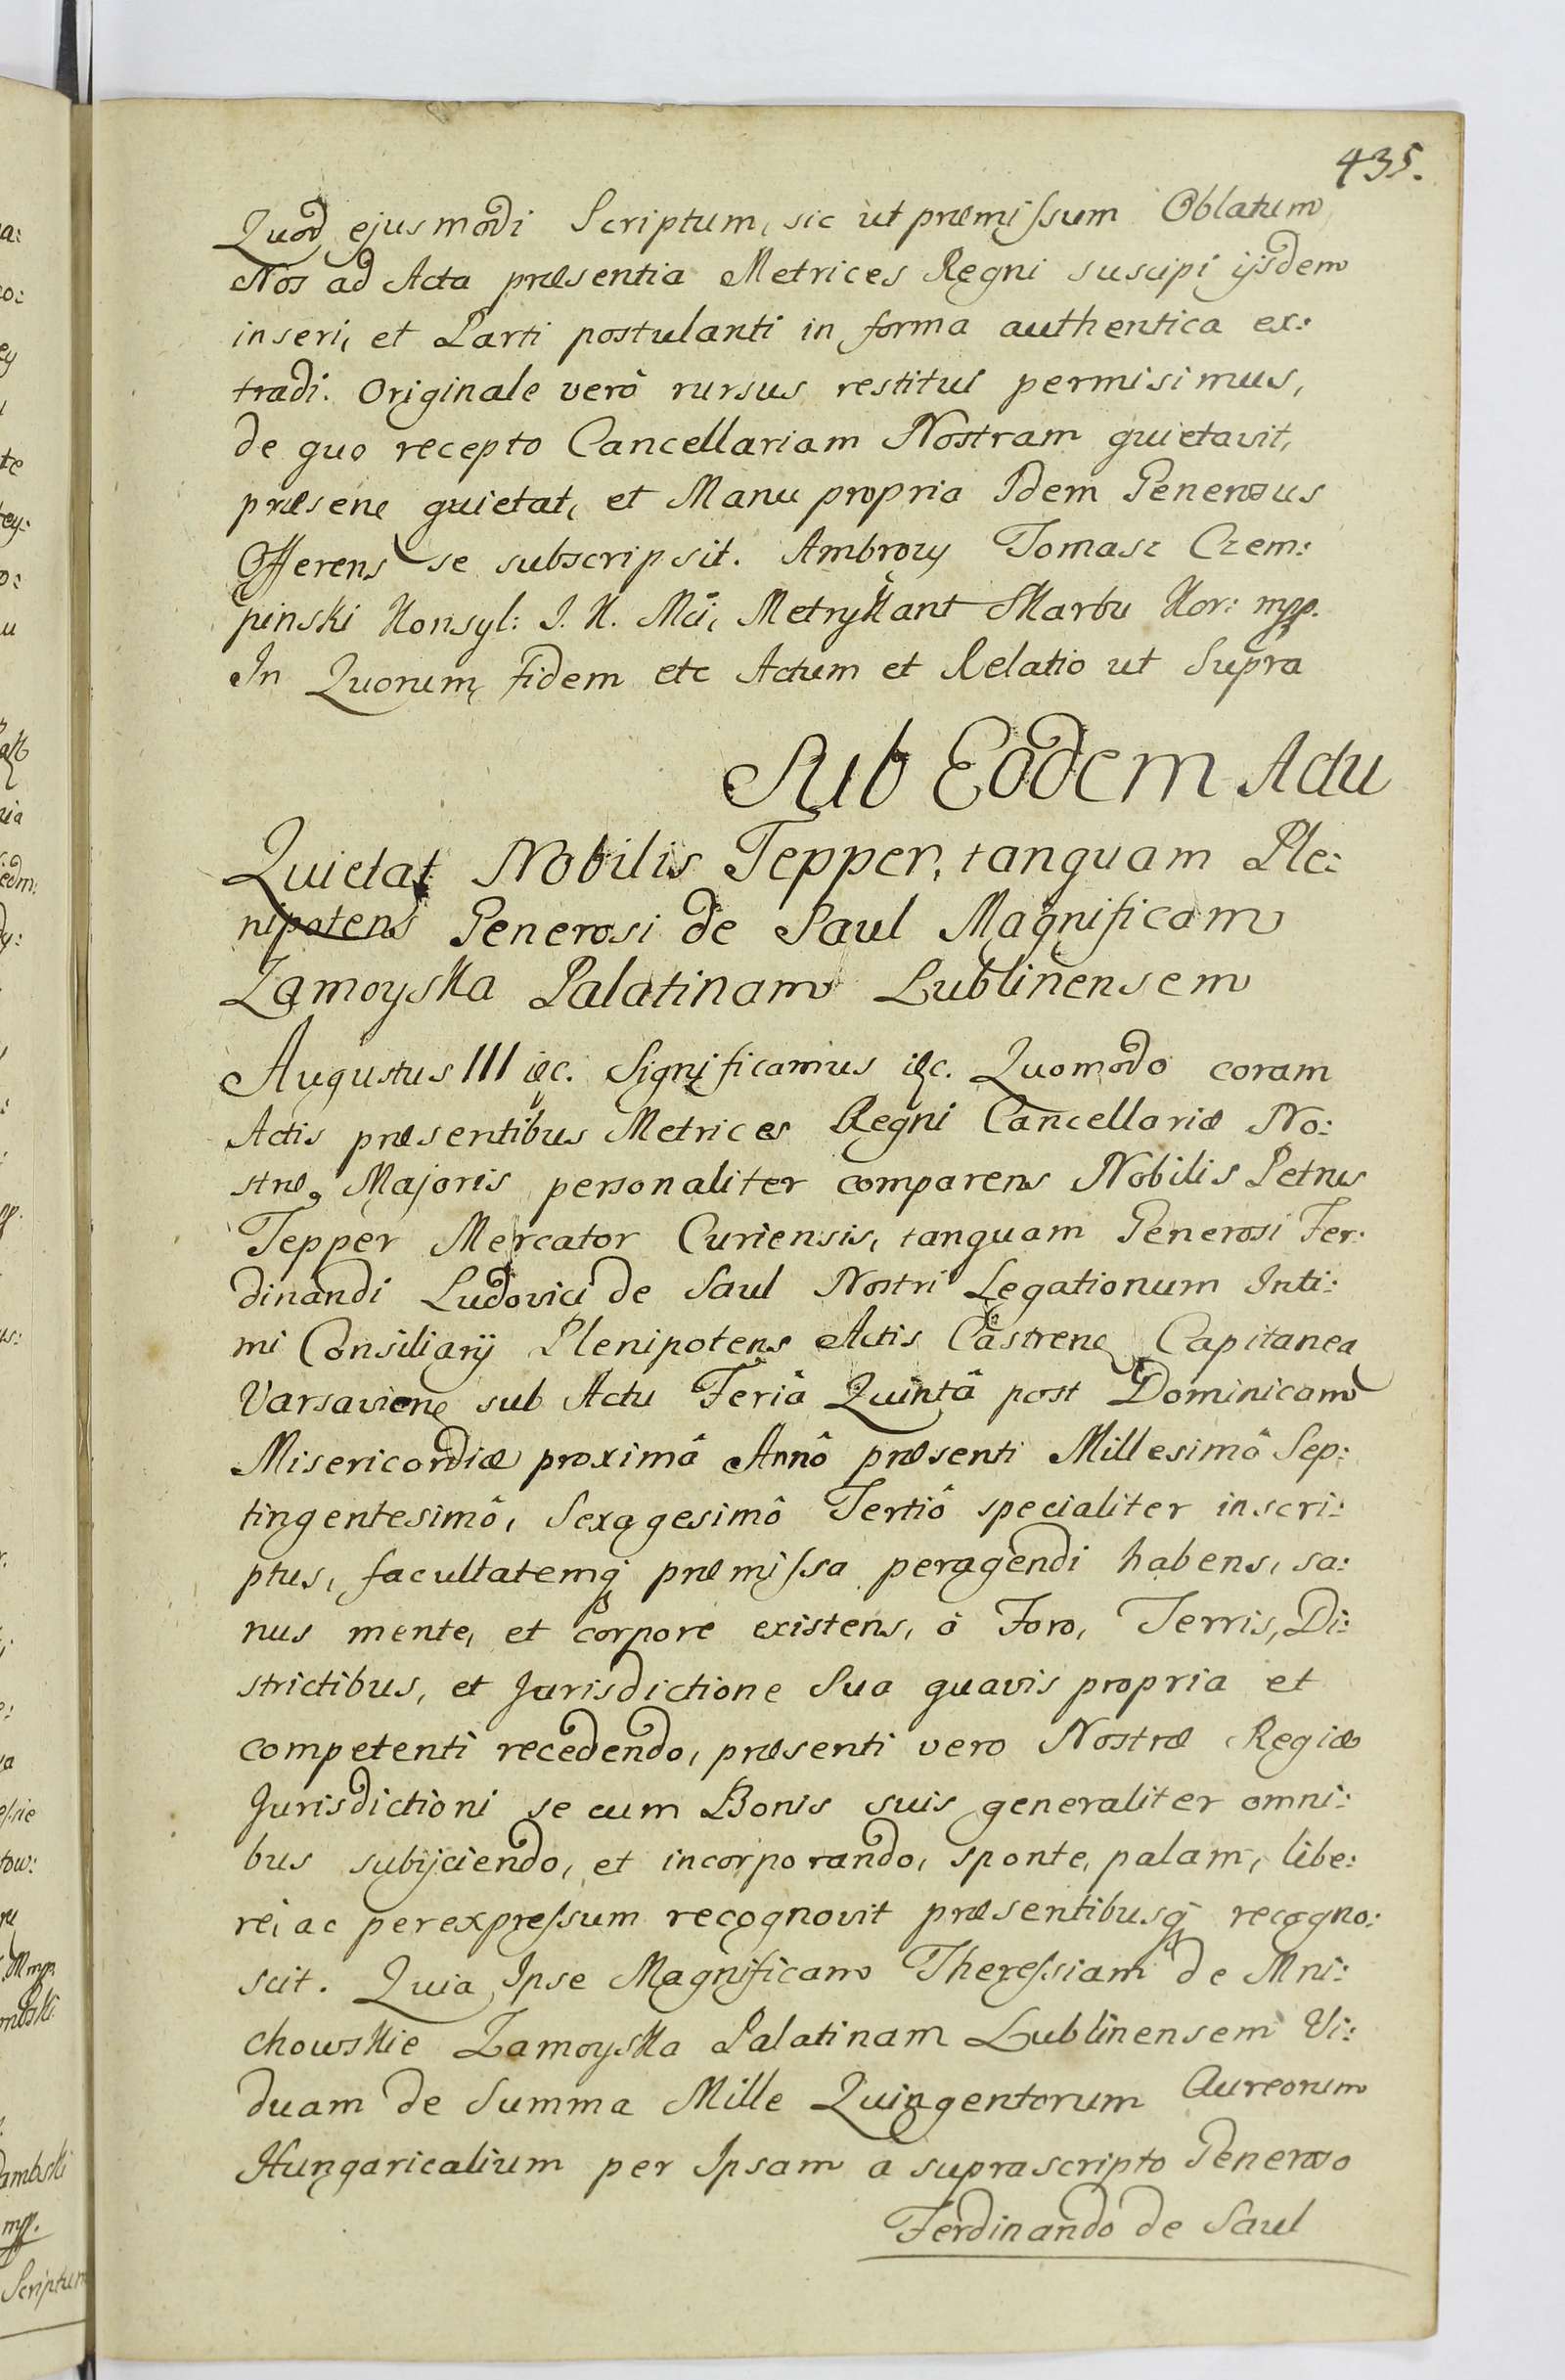 435.
Quod ejusmodi Scriptum, sic ut præmissum Oblatum
Nos ad Acta præsentia Metrices Regni suscipi ijsdem
inseri, et Parti postulanti in forma authentica ex:
tradi. Originale verò rursus restitui permisimus,
de quo recepto Cancellariam Nostram quietavit,
præsene quietat, et Manu propria Idem Generosus
Offerens se subscripsit. Ambrozy Tomasz Czem:
pinski Konsyl: J. K. Mci, Metrykant Skarbu Kor: mpp.
In Quorum fidem etc Actum et Relatio ut Supra
Sub Eodem Actu
Quietat Nobilis Tepper, tanquam Ple:
nipotens Generosi de Saul Magnificam
Zamoyska Palatinam Lublinensem
Augustus III &c. Significamus &c. Quomodo coram
Actis præsentibus Metrices Regni Cancellariæ No:
stræ, Majoris personaliter comparens Nobilis Petrus
Tepper Mercator Curiensis, tanquam Generosi Fer:
dinandi Ludovici de Saul Nostri Legationum Inti:
mi Consiliarij Plenipotens Actis Castrene Capitanea
Varsaviene sub Actu Feriâ Quintâ post Dominicam
Misericordiæ proximâ Annô præsenti Millesimô Sep:
tingentesimô, Sexagesimô Tertiô specialiter inscri:
ptus, facultatemq præmissa peragendi habens, sa:
nus mente, et corpore existens, à Foro, Terris, Di:
strictibus, et Jurisdictione Sua quavis propria et
competenti recedendo, præsenti vero Nostræ Regiæ
Jurisdictioni se cum Bonis suis generaliter omni:
bus subijciendo, et incorporando, sponte, palam, libe:
re, ac per expressum recognovit præsentibusq recogno:
scit. Quia Ipse Magnificam Theressiam de Mni:
chowskie Zamoyska Palatinam Lublinensem Vi:
duam de Summa Mille Quingentorum Aureorum
Hungaricalium per Ipsam a suprascripto Generoso
Ferdinando de Saul